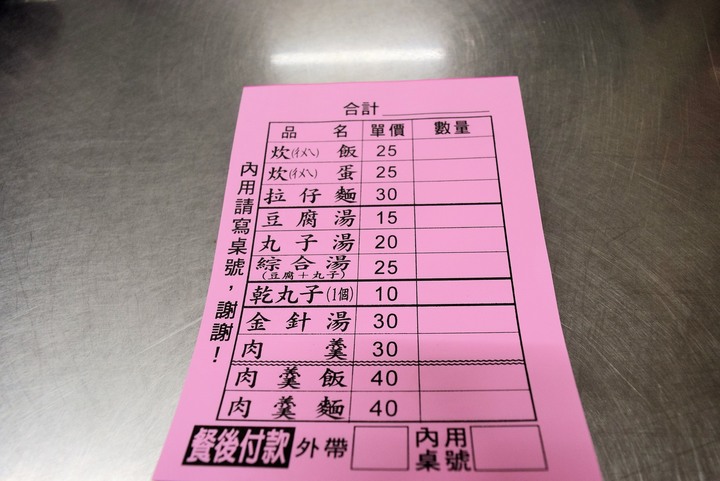 合計
品名 單價 數量
炊(ㄔㄨㄟ)飯 25
炊(ㄔㄨㄟ)蛋 25
拉仔麵 30
豆腐湯 15
丸子湯 20
綜合湯 25
(豆腐+丸子)
乾丸子(1個) 10
金針湯 30
肉羹 30
肉羹飯 40
肉羹麵 40
餐後付款 外帶 內用桌號
內用請寫桌號，謝謝！